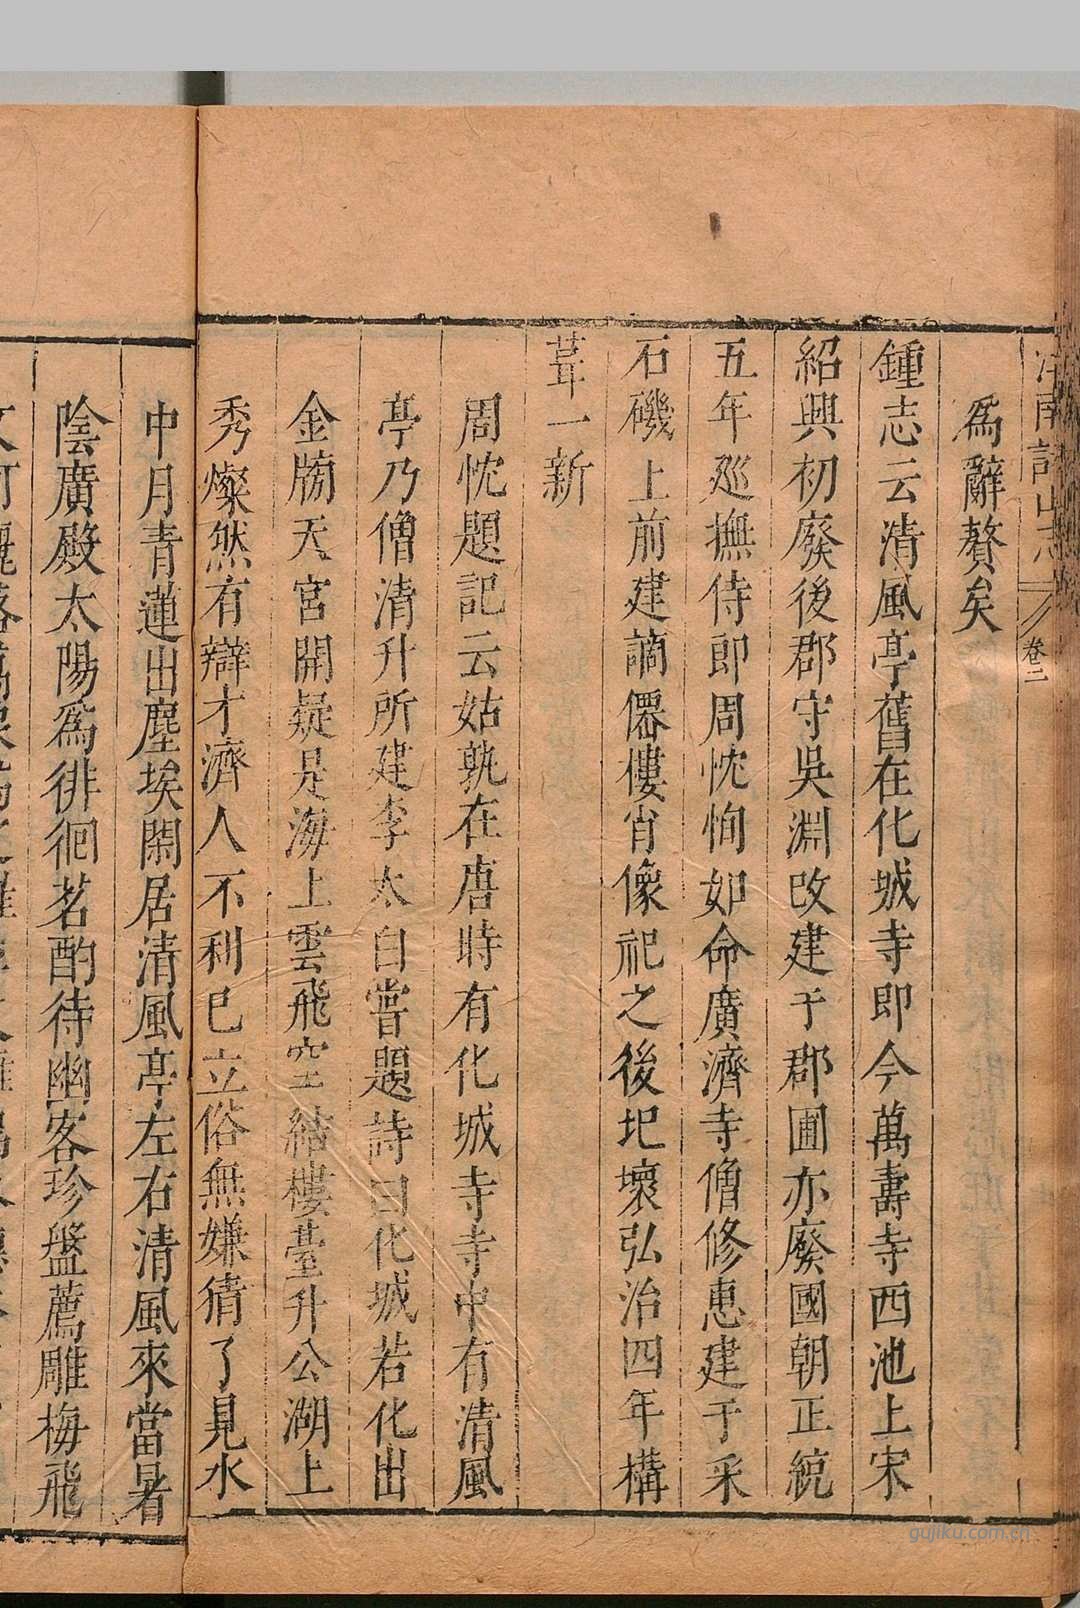 卷二
為辭贅矣
鍾志云清風亭舊在化城寺即今萬壽寺西池上宋
紹興初廢後郡守吳淵改建于郡圃亦廢國朝正統
五年廵撫侍即周忱恂如命廣濟寺僧修惠建于采
石磯上前建謫僊樓肖像祀之後圮壞弘治四年構
葺一新
周忱題記云姑孰在唐時有化城寺寺中有清風
亭乃僧清升所建李太白嘗題詩曰化城若化出
金牓天宮開疑是海上雲飛空結樓臺升公湖上
秀燦然有辯才濟人不利已立俗無嫌猜了見水
中月青蓮出塵埃閑居清風亭左右清風來當暑
陰廣殿太陽為徘徊茗酌待幽客珍盤薦雕梅飛
gujiku.com.cn